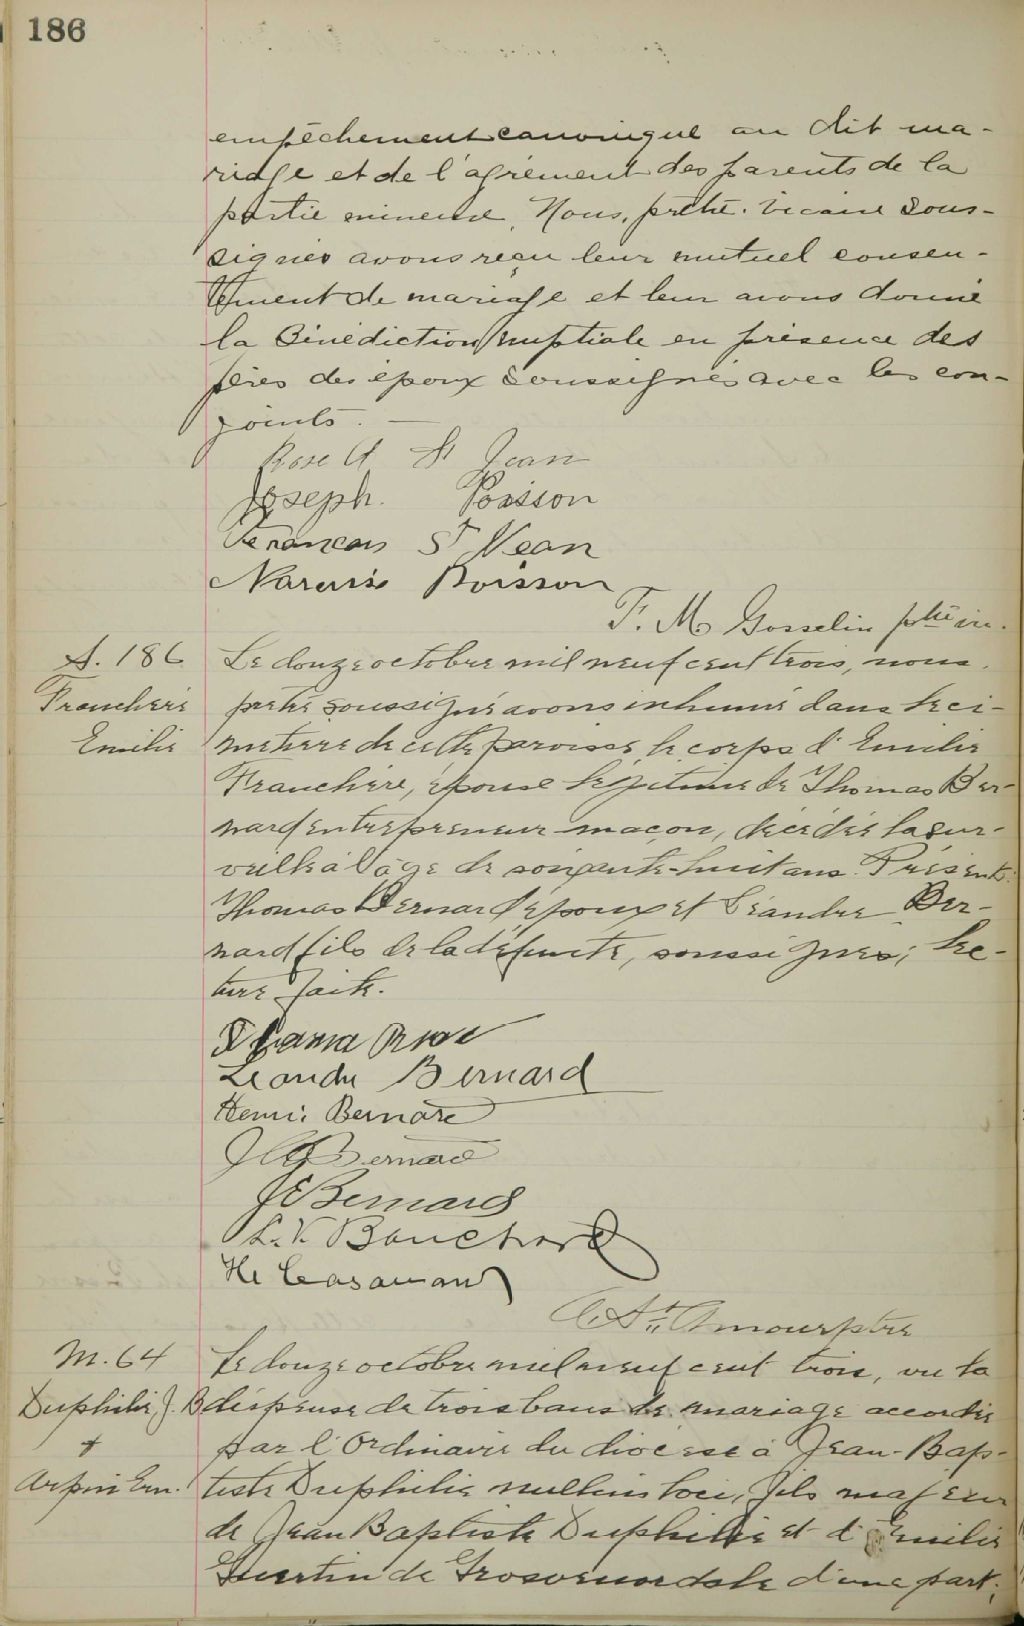 186
empêchement canonique au dit ma-
riage et de l'agrément des parents de la
partie mineure, Nous, prêtre. Vicaire sous-
signés avons reçu leur mutuel consen-
tement de mariage et leur avons donné
la Bénédiction nuptiale en présence des
pères des époux soussignés avec les con-
joints. —
Rose A St Jean
Joseph. Poisson
Francois St Jean
Narcisse Poisson
F. M. Gosselin ptre vic.
S. 186
Franchère
Emilie
Le douze octobre mil neuf cent trois, nous
prêtre soussigné avons inhumé dans le ci-
metière de cette paroisse, le corps d'Emilie
Franchère, épouse légitime de Thomas Ber-
nard entrepreneur maçon, décédée la sur-
veille à l'âge de soixante-huit ans. Présents:
Thomas Bernard époux et Léandre Ber-
nard fils de la défunte, soussignés; lec-
ture faite.
Leandre Bernard
Henri Bernard
J A Bernard
J E Bernard
L. V. Bouchard
H. Casavant
C. A. St. Amour ptre
M. 64
Duphilie, J. B
+
Arpin Em.
Le douze octobre mil neuf cent trois, vu la
dispense de trois bans de mariage accordée
par l'Ordinaire du diocèse à Jean-Bap-
tiste Duphilie nullius loci, fils majeur
de Jean Baptiste Duphilie et d'Emilie
Guertin de Grosvenordale d'une part;